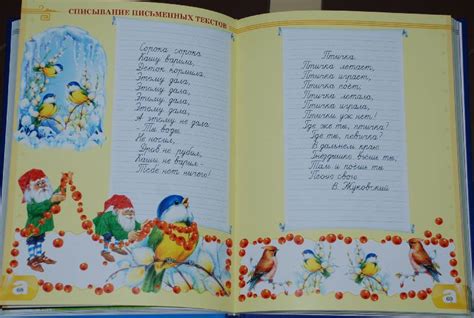 СПИСЫВАНИЕ ПИСЬМЕННЫХ ТЕКСТОВ
Сорока сорока
Кашу варила,
Деток кормила,
Этому дала,
Этому дала,
Этому дала,
Этому дала,
А этому не дала
- Ты воды
Не носил,
Дров не рубил,
Каши не варил -
Тебе нет ничего!
Птичка
Птичка летает,
Птичка играет,
Птичка поёт;
Птичка летала,
Птичка играла,
Птички уж нет!
Где же ты, птичка?
Где ты, певичка?
В дальнем краю
Гнёздышко вьёшь ты;
Там и поёшь ты
Песню свою.
В. Жуковский